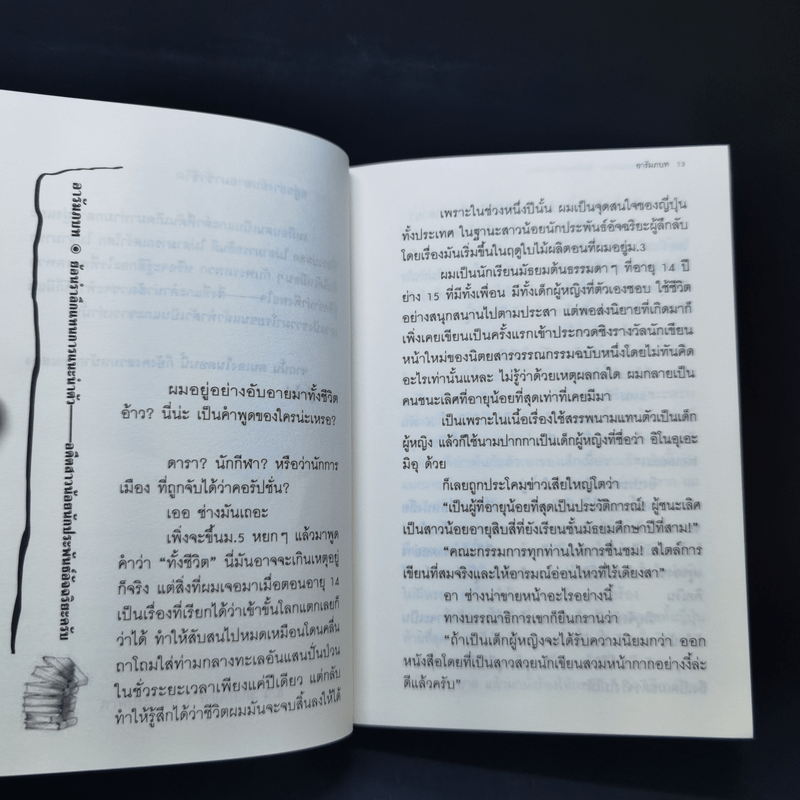 อารัมภบท ๏ ย้อนรำลึกแทนการแนะนำตัว——อดีตสาวน้อยนักประพันธ์อัจฉริยะครับ
ผมอยู่อย่างอับอายมาทั้งชีวิต
อ้าว? นี่น่ะ เป็นคำพูดของใครน่ะเหรอ?
ดารา? นักกีฬา? หรือว่านักการ
เมือง ที่ถูกจับได้ว่าคอรัปชั่น?
เออ ช่างมันเถอะ
เพิ่งจะขึ้นม.5 หยกๆ แล้วมาพูด
คำว่า “ทั้งชีวิต” นี่มันอาจจะเกินเหตุอยู่
ก็จริง แต่สิ่งที่ผมเจอมาเมื่อตอนอายุ 14
เป็นเรื่องที่เรียกได้ว่าเข้าขั้นโลกแตกเลยก็
ว่าได้ ทำให้สับสนไปหมดเหมือนโดนคลื่น
ถาโถมใส่ท่ามกลางทะเลอันแสนปั่นป่วน
ในชั่วระยะเวลาเพียงแค่ปีเดียว แต่กลับ
ทำให้รู้สึกได้ว่าชีวิตผมมันจะจบสิ้นลงให้ได้
อารัมภบท
เพราะในช่วงหนึ่งปีนั้น ผมเป็นจุดสนใจของญี่ปุ่น
ทั้งประเทศ ในฐานะสาวน้อยนักประพันธ์อัจฉริยะผู้ลึกลับ
โดยเรื่องมันเริ่มขึ้นในฤดูใบไม้ผลิตอนที่ผมอยู่ม.3
ผมเป็นนักเรียนมัธยมต้นธรรมดาๆ ที่อายุ 14 ปี
ย่าง 15 ที่มีทั้งเพื่อน มีทั้งเด็กผู้หญิงที่ตัวเองชอบ ใช้ชีวิต
อย่างสนุกสนานไปตามประสา แต่พอส่งนิยายที่เกิดมาก็
เพิ่งเคยเขียนเป็นครั้งแรกเข้าประกวดชิงรางวัลนักเขียน
หน้าใหม่ของนิตยสารวรรณกรรมฉบับหนึ่งโดยไม่ทันคิด
อะไรเท่านั้นแหละ ไม่รู้ว่าด้วยเหตุผลกลใด ผมกลายเป็น
คนชนะเลิศที่อายุน้อยที่สุดเท่าที่เคยมีมา
เป็นเพราะในเนื้อเรื่องใช้สรรพนามแทนตัวเป็นเด็ก
ผู้หญิง แล้วก็ใช้นามปากกาเป็นเด็กผู้หญิงที่ชื่อว่า อิโนอุเอะ
มิอุ ด้วย
ก็เลยถูกประโคมข่าวเสียใหญ่โตว่า
“เป็นผู้ที่อายุน้อยที่สุดเป็นประวัติการณ์! ผู้ชนะเลิศ
เป็นสาวน้อยอายุสิบสี่ที่ยังเรียนชั้นมัธยมศึกษาปีที่สาม!”
“คณะกรรมการทุกท่านให้การชื่นชม! สไตล์การ
เขียนที่สมจริงและให้อารมณ์อ่อนไหวที่ไร้เดียงสา”
อา ช่างน่าขายหน้าอะไรอย่างนี้
ทางบรรณาธิการเขาก็ยืนกรานว่า
“ถ้าเป็นเด็กผู้หญิงจะได้รับความนิยมกว่า ออก
หนังสือโดยที่เป็นสาวสวยนักเขียนสวมหน้ากากอย่างงี้ล่ะ
ดีแล้วครับ”